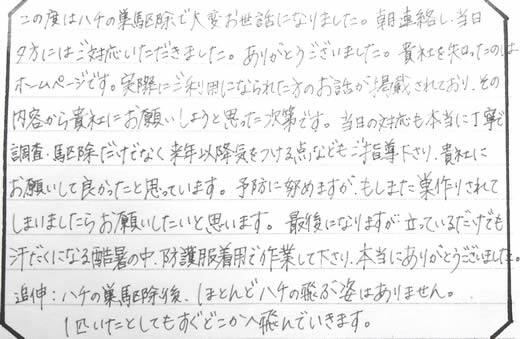 この度はハチの巣駆除で大変お世話になりました。朝連絡し、当日
夕方にはご対応いただきました。ありがとうございました。貴社を知ったのは
ホームページです。実際にご利用になられた方のお話が掲載されており、その
内容から貴社にお願いしようと思った次第です。当日の対応も本当に丁寧で
調査・駆除だけでなく来年以降気をつける点などもご指導下さり、貴社に
お願いして良かったと思っています。予防に努めますが、もしまた巣作りされて
しまいましたらお願いしたいと思います。最後になりますが立っているだけでも
汗だくになる酷暑の中、防護服着用で作業して下さり、本当にありがとうございました。
追伸:ハチの巣駆除後、ほとんどハチの飛ぶ姿はありません。
1匹いたとしてもすぐどこかへ飛んでいきます。